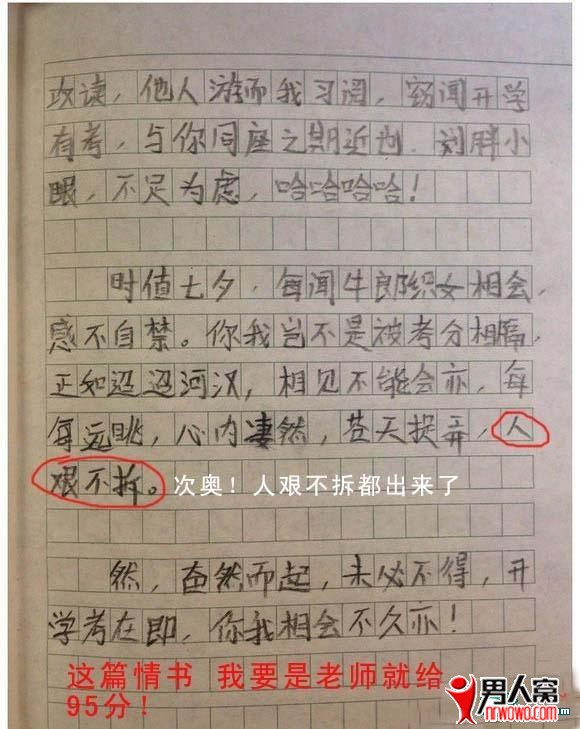 攻读，他人游而我习阅，窃闻开学
有考，与你同座之期近也，刘胖小
眼，不足为虑，哈哈哈哈！
时值七夕，每闻牛郎织女相会，
感不自禁。你我岂不是被考分相隔，
正如迢迢河汉，相见不能会亦，每
每远眺，心内凄然，苍天捉弄，人
艰不拆。次奥！人艰不拆都出来了
然，奋然而起，未必不得，开
学考在即，你我相会不久亦！
这篇情书 我要是老师就给
95分！
男人窝
nrwowo.com